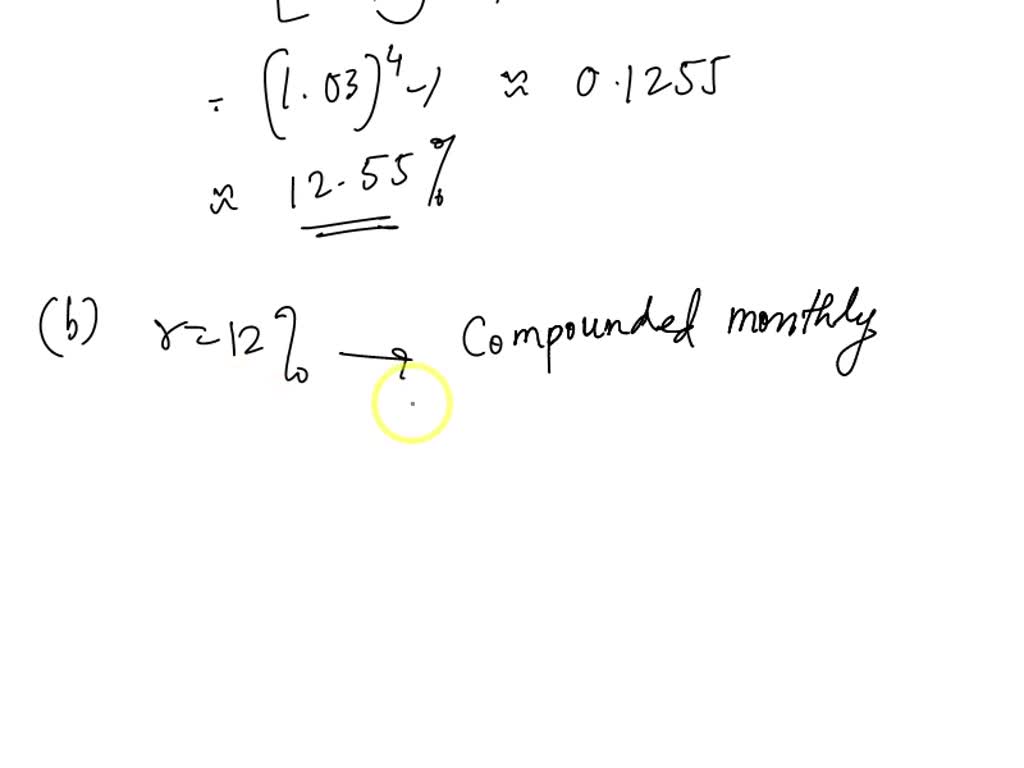 = (1.03)^4 - 1 ≈ 0.1255
≈ 12.55%
(b) r = 12% → Compounded monthly